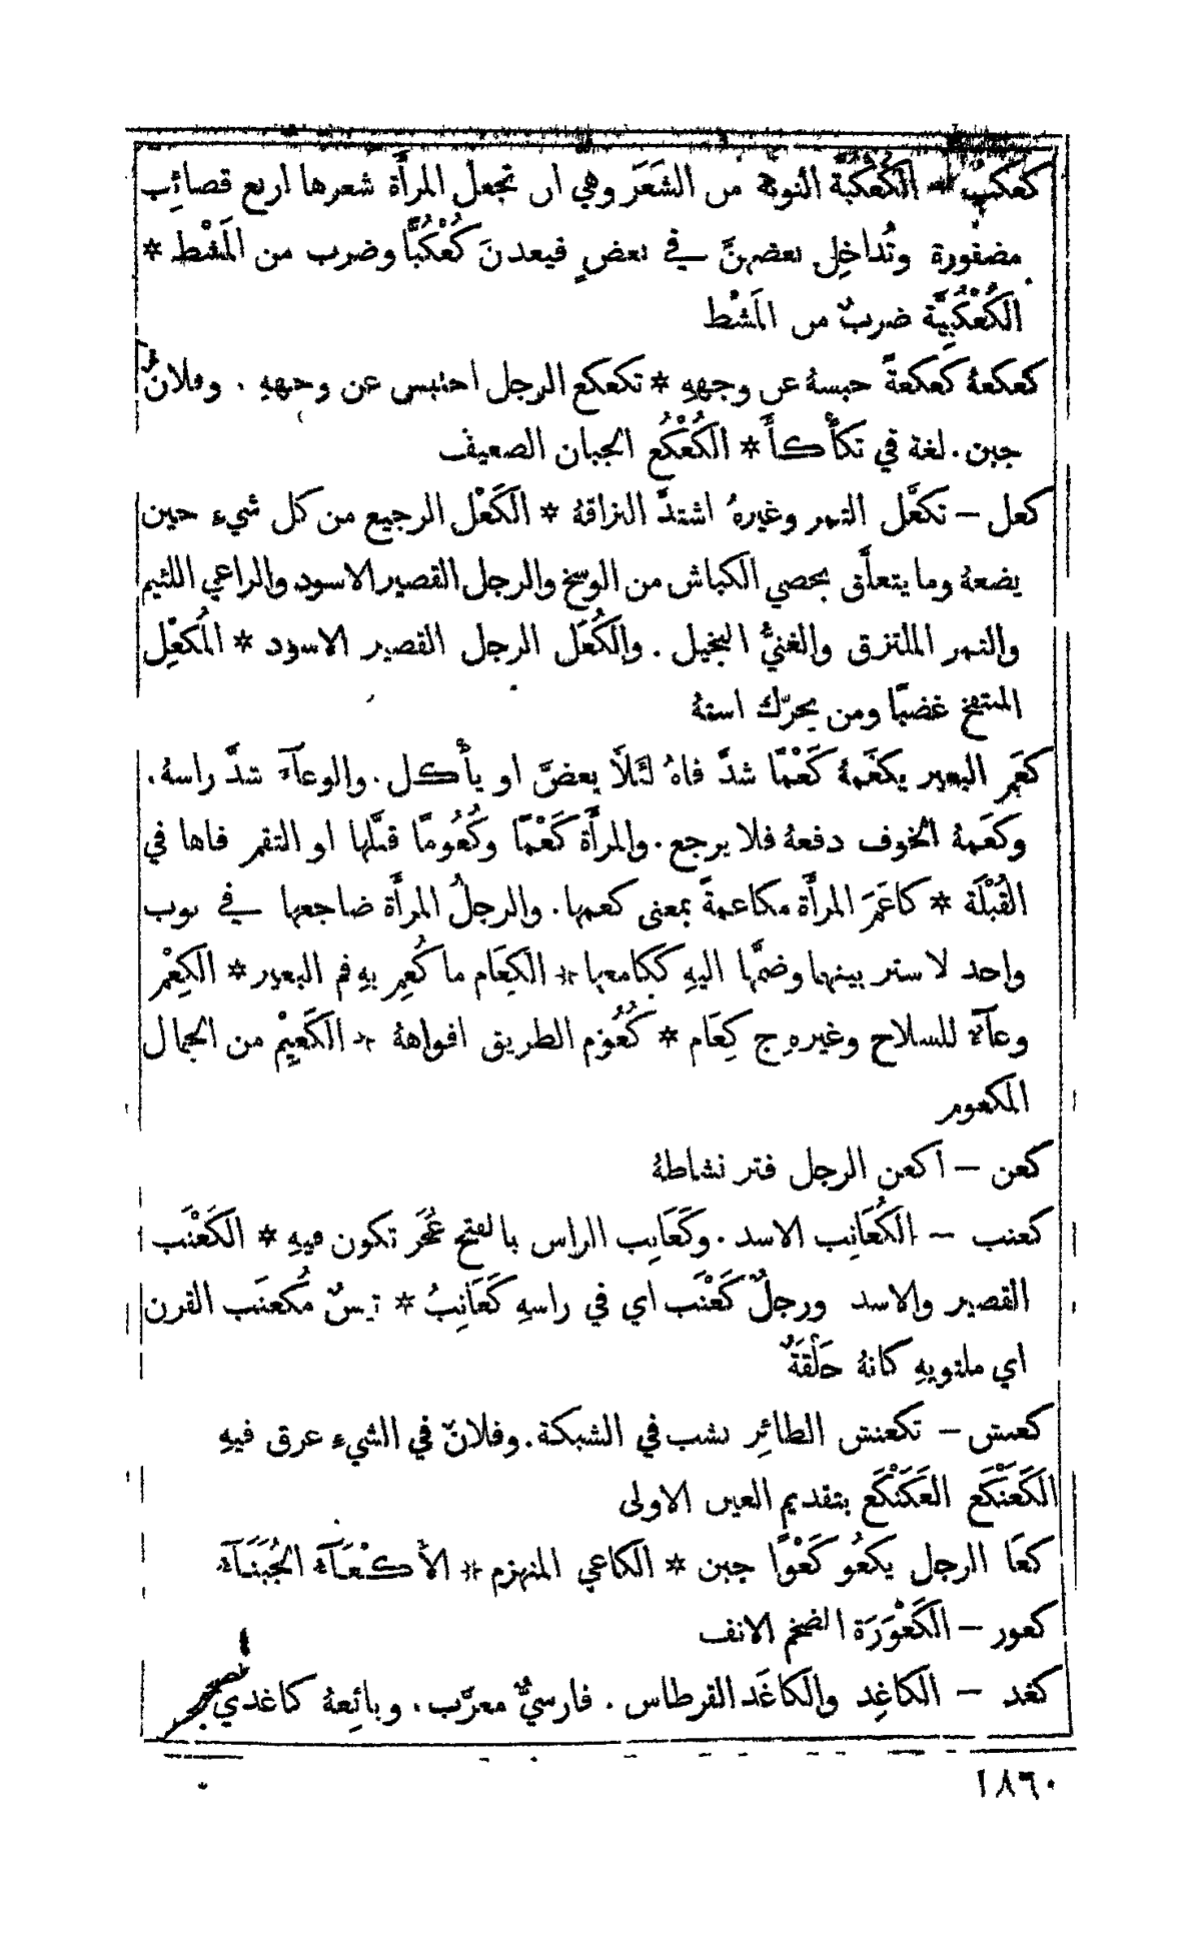 كعكب — الكُعْكُبَّة النونة من الشَعَر وهي ان تجعل المرأَة شعرها اربع قصائِب
مضفورة وتُداخِل بعضهنَّ في بعضٍ فيعدنَ كُعْكُبًّا وضرب من المَشْط *
الكُعْكُبِيَّة ضربٌ من المَشْط
كعكعهُ كَعكعةً حبسهُ عن وجههِ * تكعكع الرجل احتبس عن وجههِ . وفلانٌ
جبن . لغة في تكأْكأَ * الكُعْكُع الجبان الضعيف
كعل — تكعَّل التمر وغيرهُ اشتدَّ التزاقهُ * الكَعْل الرجيع من كل شيءٍ حين
يضعهُ وما يتعلَّق بخصي الكباش من الوسخ والرجل القصير الاسود والراعي اللئيم
والتمر الملتزق والغنيُّ البخيل . والكُعَل الرجل القصير الاسود * المُكعْل
المنتفخ غضبًا ومن يحرّك استهُ
كعَم البعير يكعَمهُ كَعْمًا شدَّ فاهُ لئلَّا يعضَّ او يأْكل . والوعآءَ شدَّ راسهُ .
وكعَمهُ الخوف دفعهُ فلا يرجع . والمرأَة كَعْمًا وكُعُومًا قبَّلها او التقم فاها في
القُبْلَة * كاعَمَ المرأَة مكاعمةً بمعنى كعمها . والرجلُ المرأَة ضاجعها في ثوب
واحد لا ستر بينهما وضمَّها اليهِ ككامعها * الكِعَام ما كُعِم بهِ فم البعير * الكِعْم
وعآءٌ للسلاح وغيرهِ ج كِعَام * كُعُوم الطريق افواههُ * الكَعِيْم من الجمال
المكعوم
كعن — أكعن الرجل فتر نشاطهُ
كعنب — الكُعَانِب الاسد . وكَعَانِب الراس بالفتح عُجَر تكون فيهِ * الكَعْنَب
القصير والاسد ورجلٌ كَعْنَب اي في راسهِ كَعَانِبُ * تيسٌ مُكعنَب القرن
اي ملتويهِ كانهُ حَلْقَةٌ
كعنش — تكعنش الطائِر نشب في الشبكة . وفلانٌ في الشيءِ غرق فيهِ
الكَعَنْكَع العَكَنْكَع بتقديم العين الاولى
كعَا الرجل يكعُو كَعْوًا جبن * الكاعي المنهزم * الأَكْعَآءُ الجُبَنَآءُ
كعور — الكَعْوَرَة الضخم الانف
كغد — الكاغِد والكاغَد القرطاس . فارسيٌّ معرَّب . وبائِعهُ كاغدي
١٨٦٠